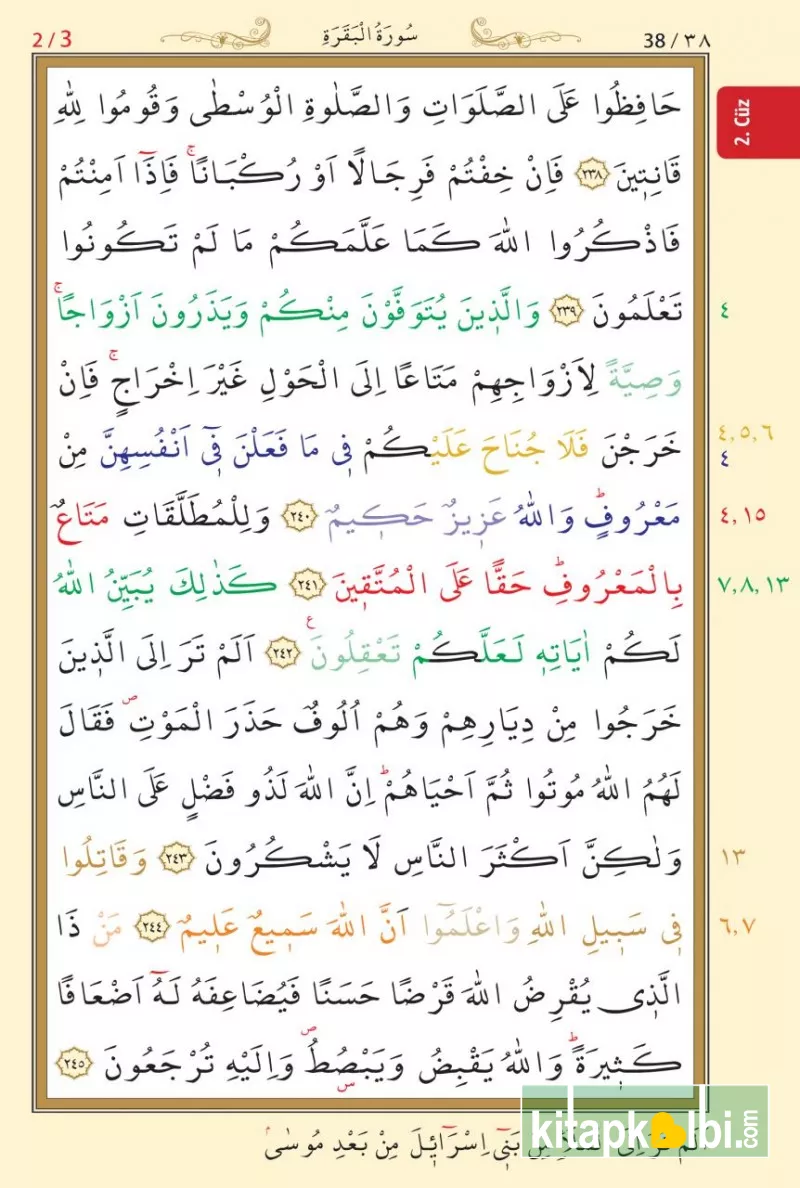 2 / 3
سُورَةُ الْبَقَرَةِ
38 / ٣٨
2. Cüz
حَافِظُوا عَلَى الصَّلَوَاتِ وَالصَّلٰوةِ الْوُسْطٰى وَقُومُوا لِلّٰهِ
قَانِت۪ينَ ﴿٢٣٨﴾ فَاِنْ خِفْتُمْ فَرِجَالًا اَوْ رُكْبَانًاۚ فَاِذَٓا اَمِنْتُمْ
فَاذْكُرُوا اللّٰهَ كَمَا عَلَّمَكُمْ مَا لَمْ تَكُونُوا
تَعْلَمُونَ ﴿٢٣٩﴾ وَالَّذ۪ينَ يُتَوَفَّوْنَ مِنْكُمْ وَيَذَرُونَ اَزْوَاجًاۚ
٤
وَصِيَّةً لِاَزْوَاجِهِمْ مَتَاعًا اِلَى الْحَوْلِ غَيْرَ اِخْرَاجٍۚ فَاِنْ
خَرَجْنَ فَلَا جُنَاحَ عَلَيْكُمْ ف۪ي مَا فَعَلْنَ ف۪ٓي اَنْفُسِهِنَّ مِنْ
٤,٥,٦
٤
مَعْرُوفٍۜ وَاللّٰهُ عَز۪يزٌ حَك۪يمٌ ﴿٢٤٠﴾ وَلِلْمُطَلَّقَاتِ مَتَاعٌ
٤,١٥
بِالْمَعْرُوفِۜ حَقًّا عَلَى الْمُتَّق۪ينَ ﴿٢٤١﴾ كَذٰلِكَ يُبَيِّنُ اللّٰهُ
٧,٨,١٣
لَكُمْ اٰيَاتِه۪ لَعَلَّكُمْ تَعْقِلُونَ ﴿٢٤٢﴾ اَلَمْ تَرَ اِلَى الَّذ۪ينَ
خَرَجُوا مِنْ دِيَارِهِمْ وَهُمْ اُلُوفٌ حَذَرَ الْمَوْتِۖ فَقَالَ
لَهُمُ اللّٰهُ مُوتُوا ثُمَّ اَحْيَاهُمْۜ اِنَّ اللّٰهَ لَذُو فَضْلٍ عَلَى النَّاسِ
وَلٰكِنَّ اَكْثَرَ النَّاسِ لَا يَشْكُرُونَ ﴿٢٤٣﴾ وَقَاتِلُوا
١٣
ف۪ي سَب۪يلِ اللّٰهِ وَاعْلَمُٓوا اَنَّ اللّٰهَ سَم۪يعٌ عَل۪يمٌ ﴿٢٤٤﴾ مَنْ ذَا
٦,٧
الَّذ۪ي يُقْرِضُ اللّٰهَ قَرْضًا حَسَنًا فَيُضَاعِفَهُ لَهُٓ اَضْعَافًا
كَث۪يرَةًۜ وَاللّٰهُ يَقْبِضُ وَيَبْصُۣطُۖ وَاِلَيْهِ تُرْجَعُونَ ﴿٢٤٥﴾
بَن۪ٓي اِسْرَٓائ۪لَ مِنْ بَعْدِ مُوسٰىۢ
kitapkalbi.com